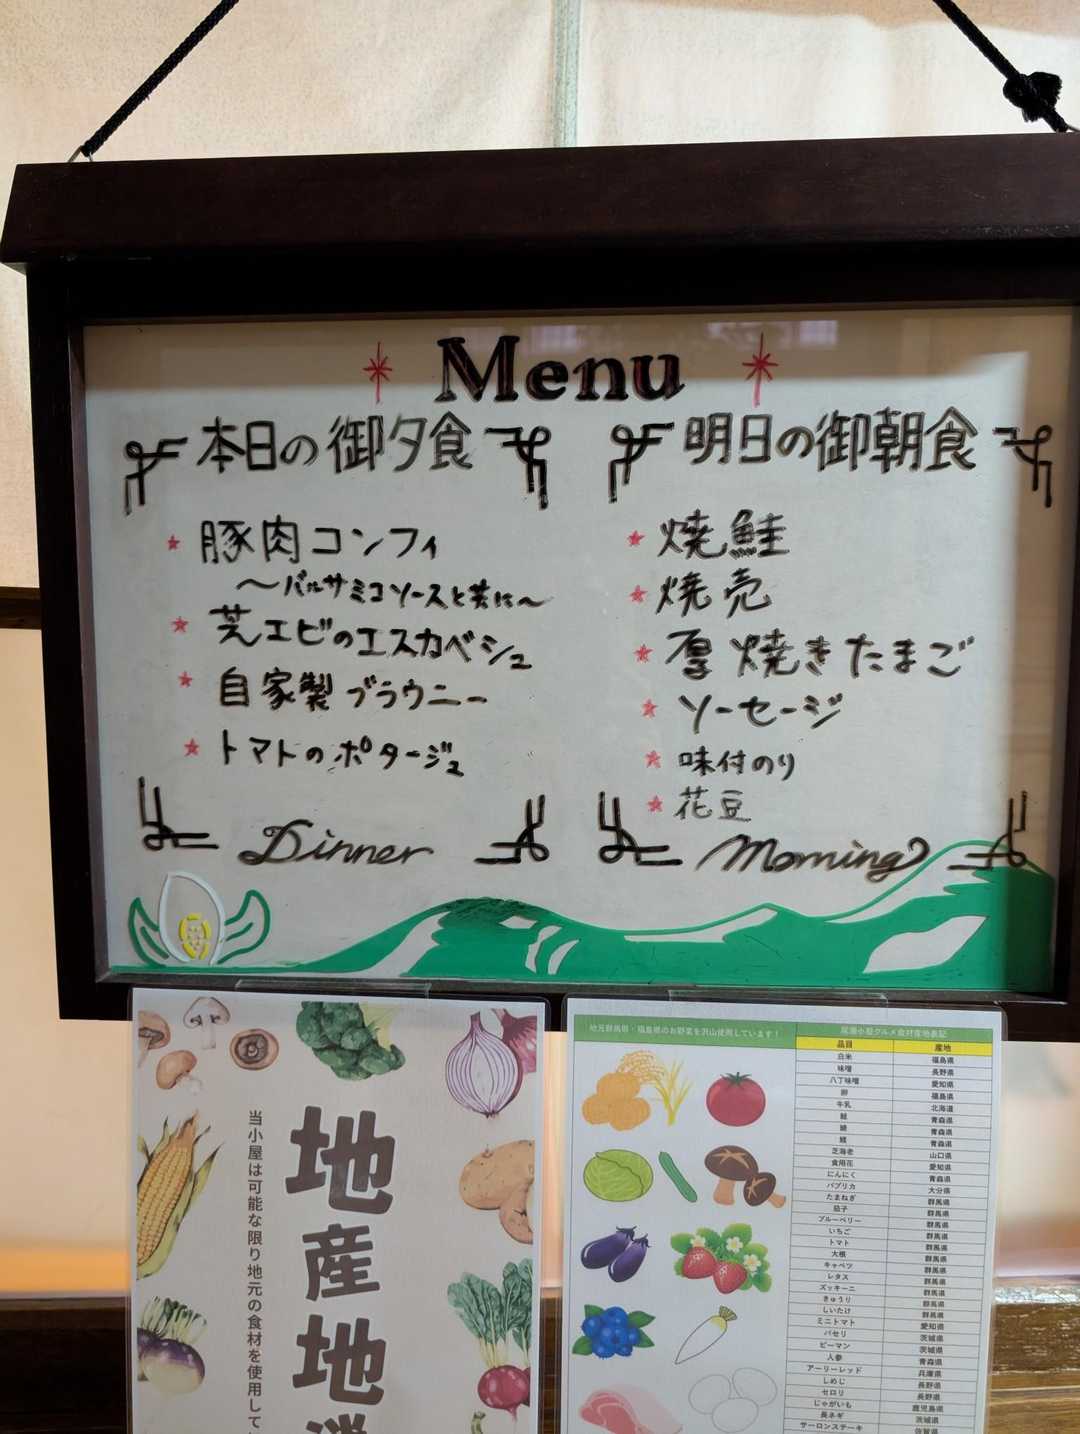 Menu
本日の御夕食
豚肉コンフィ
〜バルサミコソースと共に〜
芝エビのエスカベシュ
自家製ブラウニー
トマトのポタージュ
Dinner
明日の御朝食
焼鮭
焼売
厚焼きたまご
ソーセージ
味付のり
花豆
Morning
地産地消
当小屋は可能な限り地元の食材を使用して
地元群馬県・福島県のお野菜を沢山使用しています！
尾瀬小屋グルメ食材産地表記
品目 産地
白米 福島県
味噌 長野県
八丁味噌 愛知県
卵 福島県
牛乳 北海道
青森県
青森県
青森県
芝海老 山口県
食用花 愛知県
にんにく 青森県
パプリカ 大分県
たまねぎ 群馬県
茄子 群馬県
ブルーベリー 群馬県
いちご 群馬県
トマト 群馬県
大根 群馬県
キャベツ 群馬県
レタス 群馬県
ズッキーニ 群馬県
きゅうり 群馬県
しいたけ 群馬県
ミニトマト 愛知県
パセリ 茨城県
ピーマン 茨城県
人参 青森県
アーリーレッド 兵庫県
しめじ 長野県
セロリ 長野県
じゃがいも 鹿児島県
長ネギ 茨城県
サーロインステーキ 佐賀県